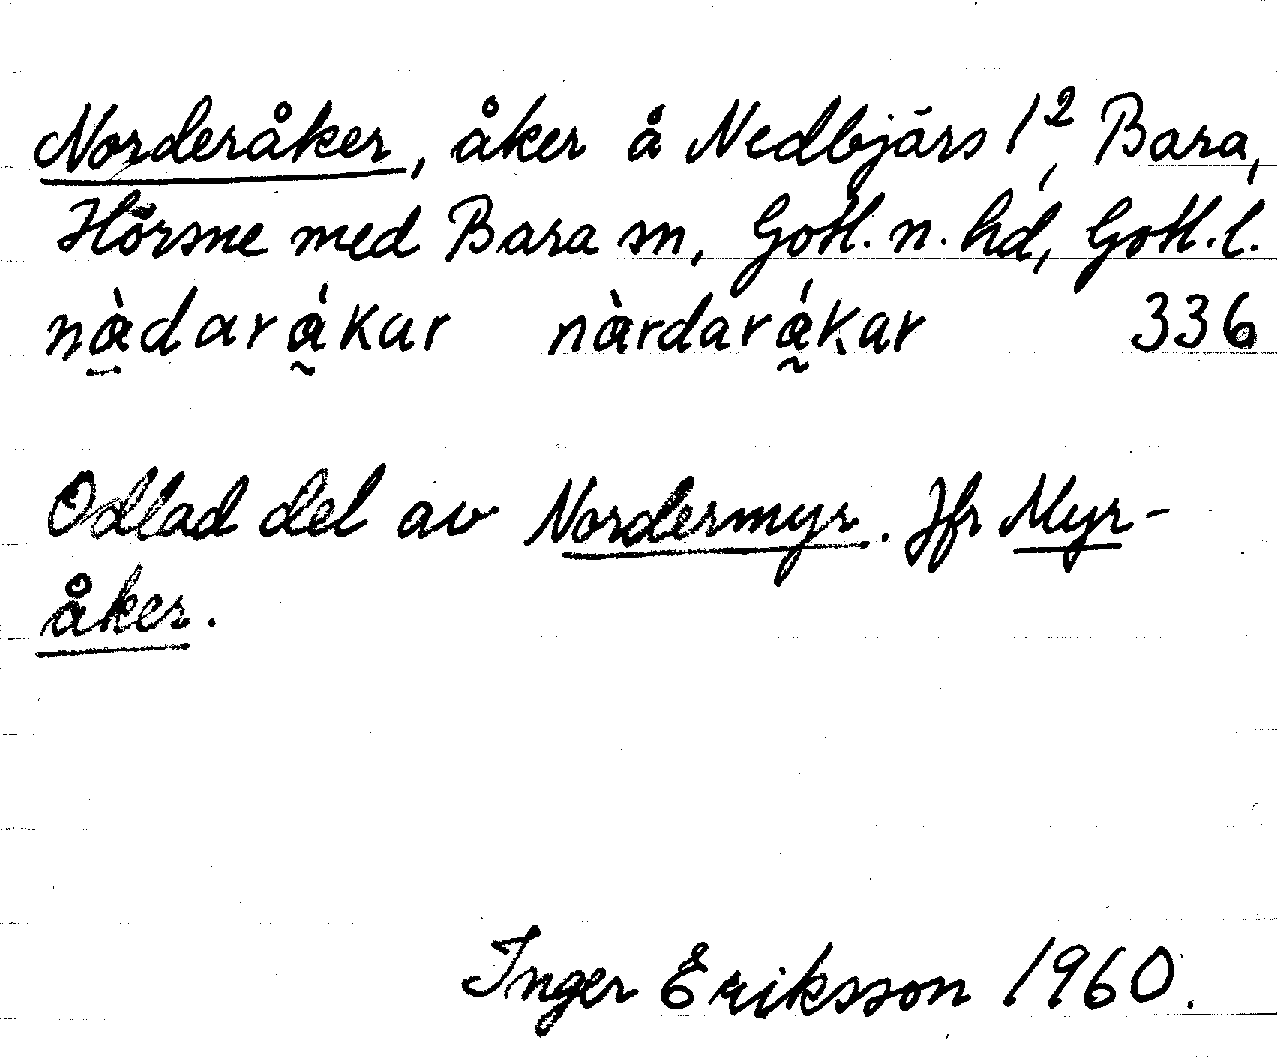 Norderåker, åker å Nedbjärs 1², Bara,
Hörsne med Bara sn, Gotl. n. hd, Gotl. l.
nà̱daráḵ̃ar nàrdará̰kar 336
Odlad del av Nordermyr. Jfr Myr-
åker.
Inger Eriksson 1960.